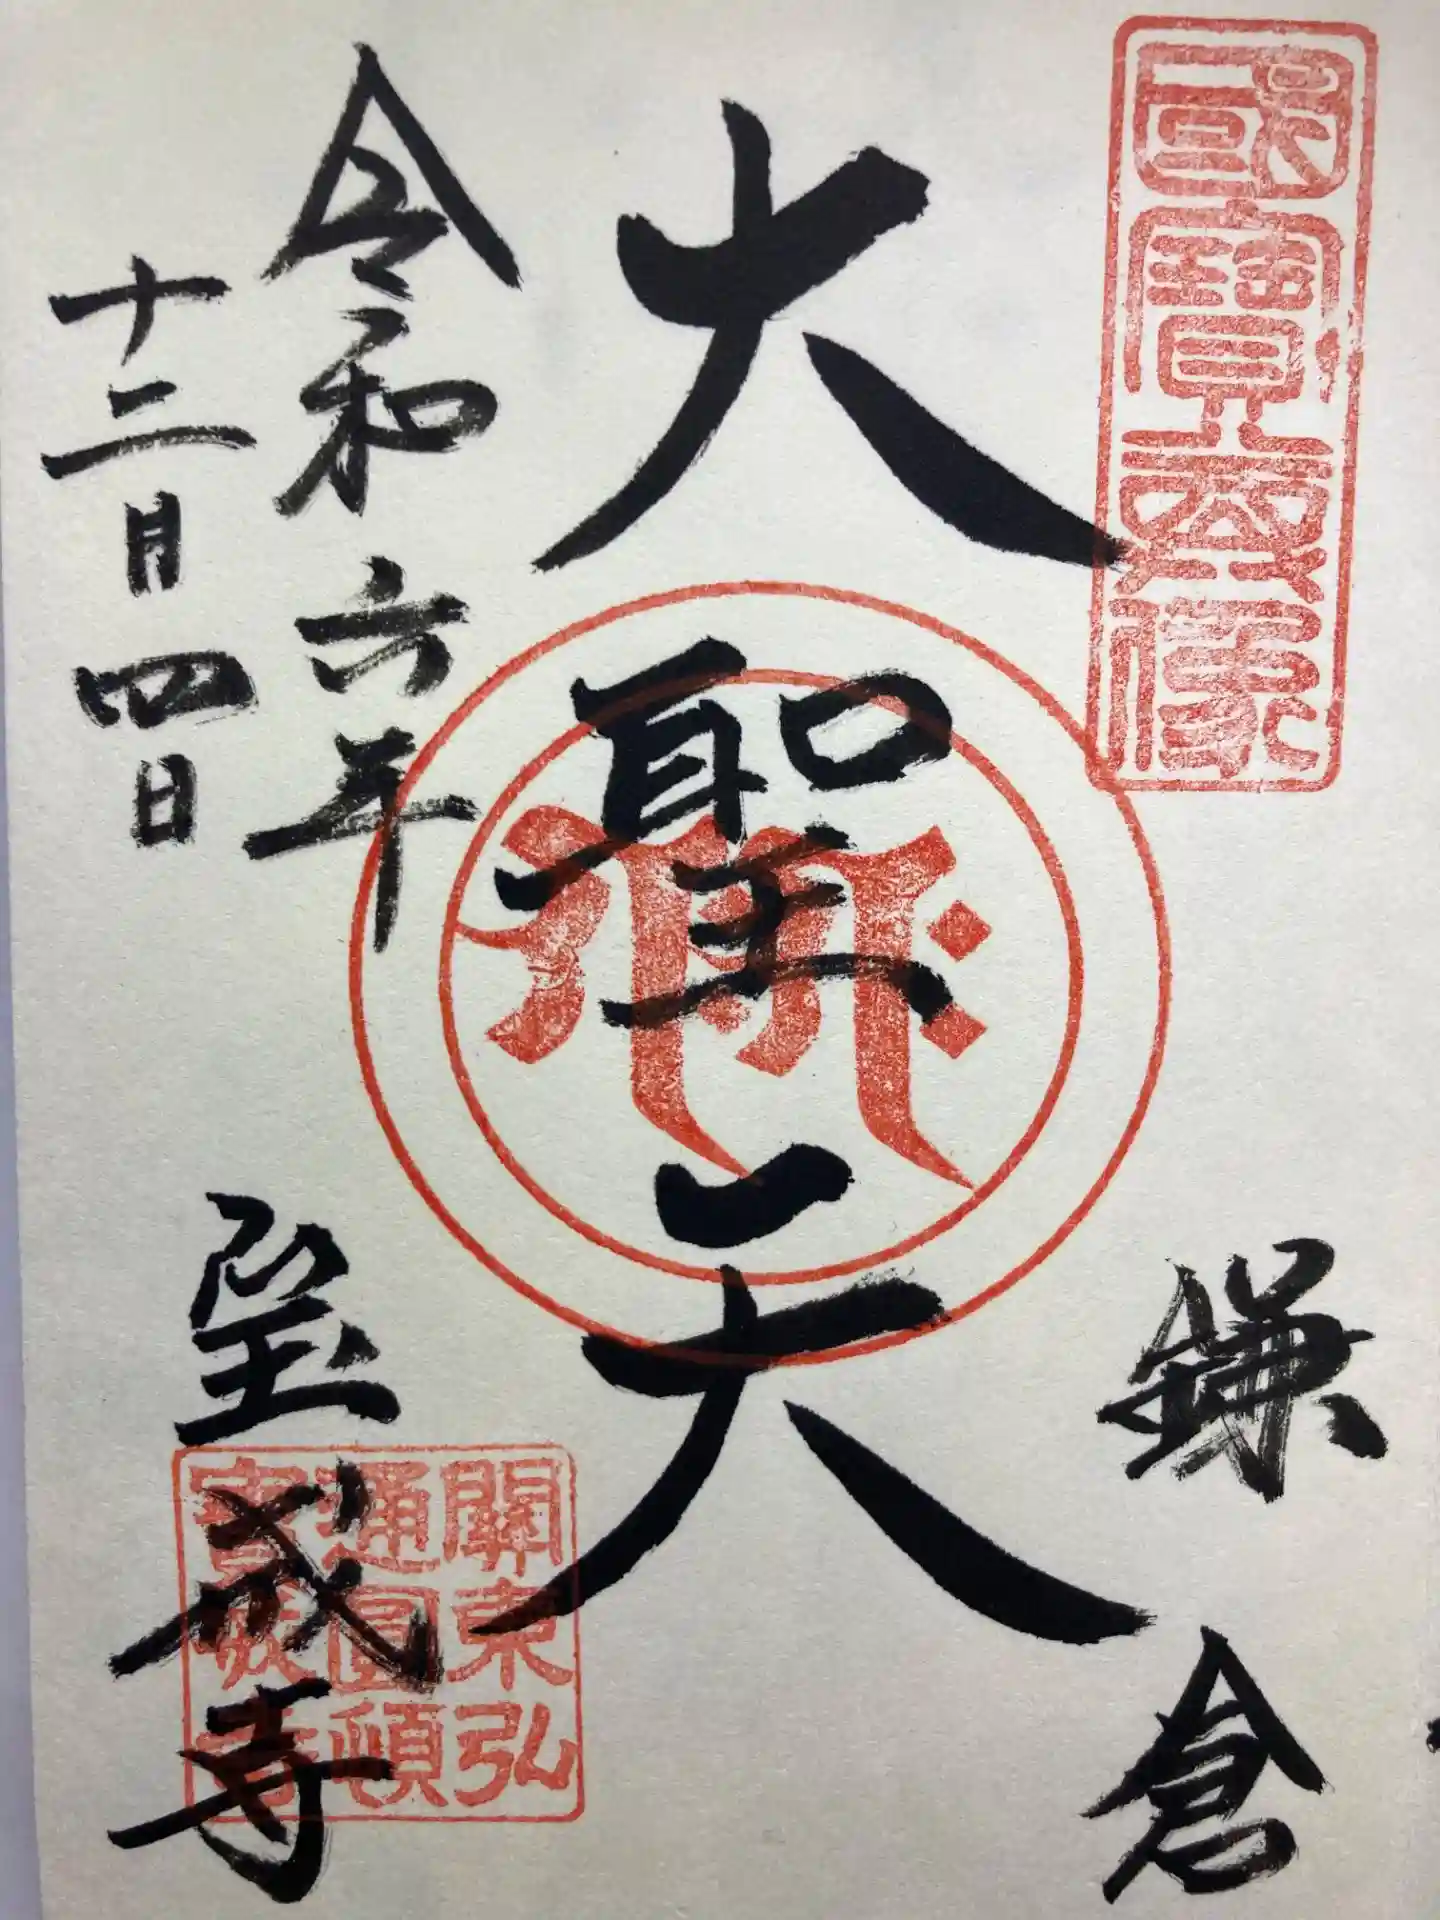 國寶
鎌倉
大聖天
令和六年
十二月四日
宝戒寺
關東弘
通圓頓
寶戒寺